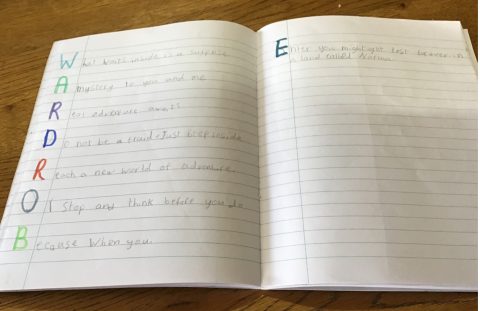 What waits inside is a surprise
A mystery to you and me
Real adventure awaits
Do not be afraid Just step inside
Reach a new world of adventure.
Or Stop and think before you do
Because When you.
Enter you might get lost forever in
a land called Narnia